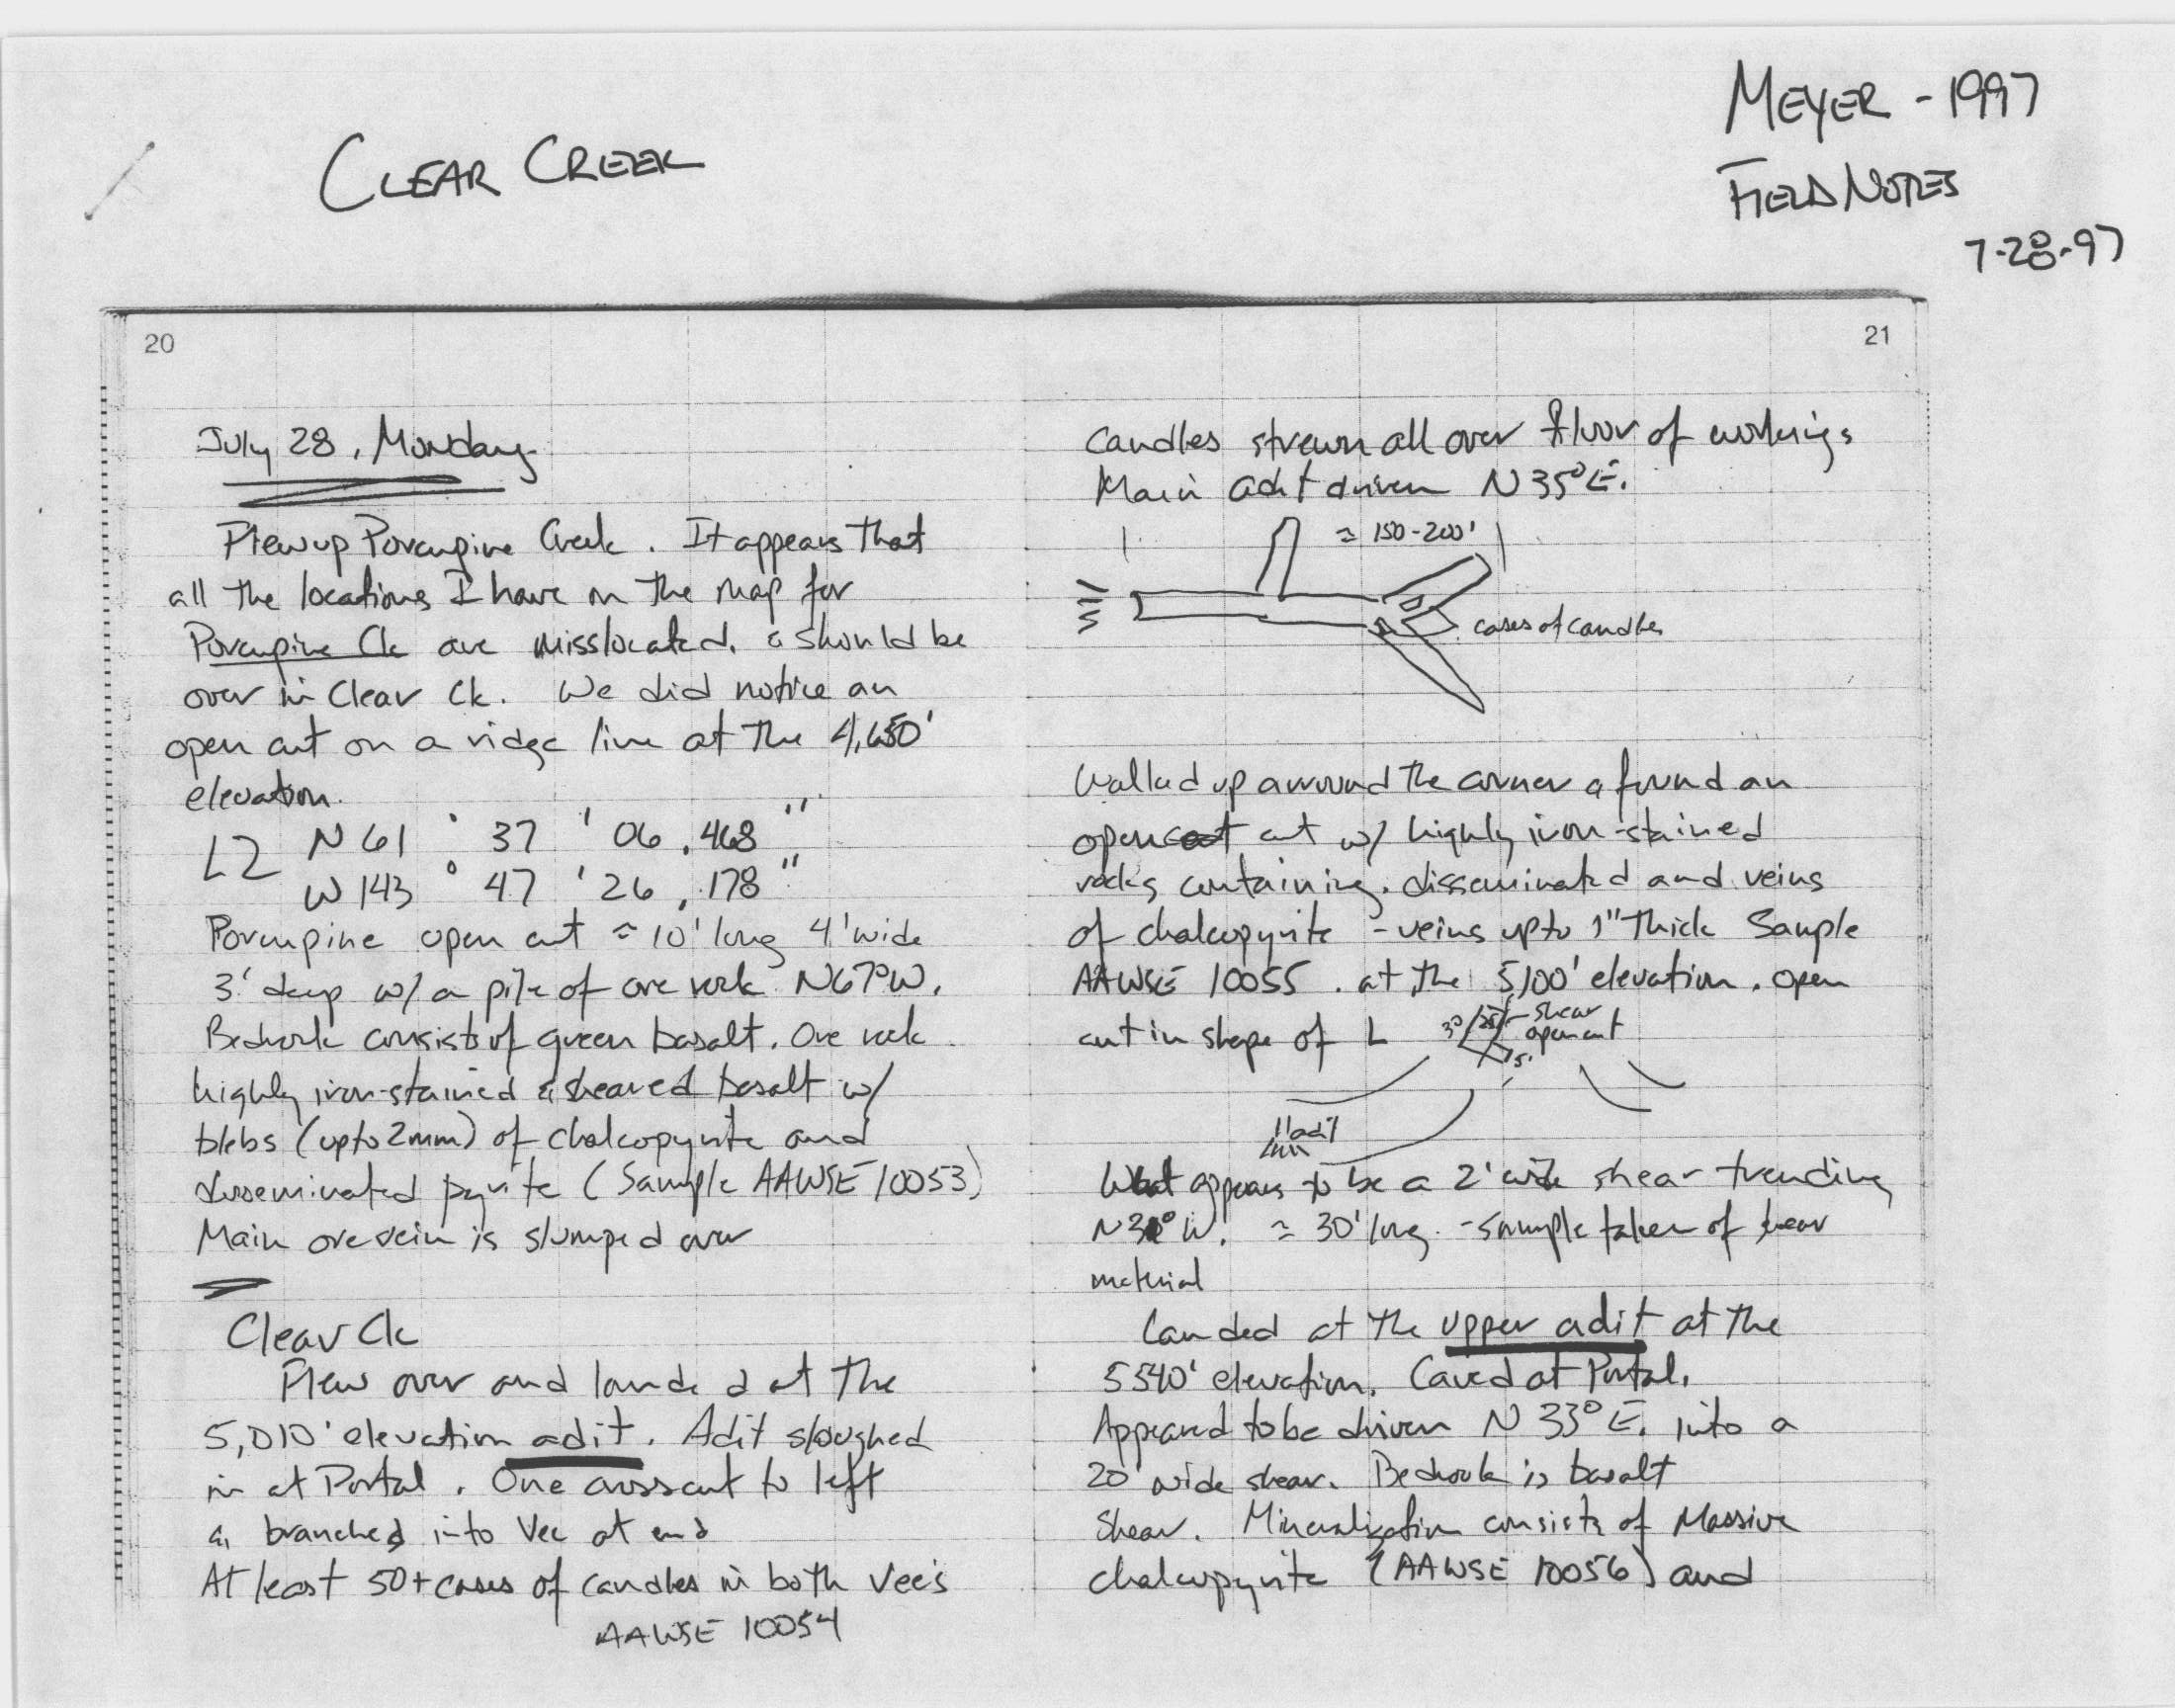 CLEAR CREEK
MEYER - 1997
FIELD NOTES
7-28-97
20
July 28, Monday
Flew up Porcupine Creek. It appears that
all the locations I have on the map for
Porcupine Ck are misslocated. & should be
over in Clear Ck. We did notice an
open cut on a ridge line at the 4,650'
elevation.
L2 N 61 ° 37 ' 06.468 "
W 143 ° 47 ' 26.178 "
Porcupine open cut ≈ 10' long 4' wide
3' deep w/ a pile of ore rock N67°W.
Bedrock consists of green basalt. Ore rock
highly iron-stained & sheared basalt w/
blebs (up to 2mm) of chalcopyrite and
disseminated pyrite (Sample AAWSE 10053)
Main ore vein is slumped over
Clear Ck
Flew over and landed at the
5,010' elevation adit. Adit sloughed
in at Portal. One crosscut to left
& branches into Vee at end
At least 50+ cases of candles in both Vee's
AAWSE 10054
21
Candles strewn all over floor of workings
Main adit driven N 35°E.
≈ 150-200'
cases of candles
Walked up arround the corner & found an
open cut w/ highly iron-stained
rocks containing disseminated and veins
of chalcopyrite - veins up to 1" thick Sample
AAWSE 10055. at the 5,100' elevation. open
cut in shape of L
30 25' shear
open cut
15'
adit
What appears to be a 2' wide shear trending
W. ≈ 30' long. - sample taken of shear
material
Landed at the upper adit at the
5540' elevation. Caved at Portal.
Appeared to be driven N 33° E. into a
20' wide shear. Bedrock is basalt
Shear. Mineralization consists of Massive
chalcopyrite (AAWSE 10056) and